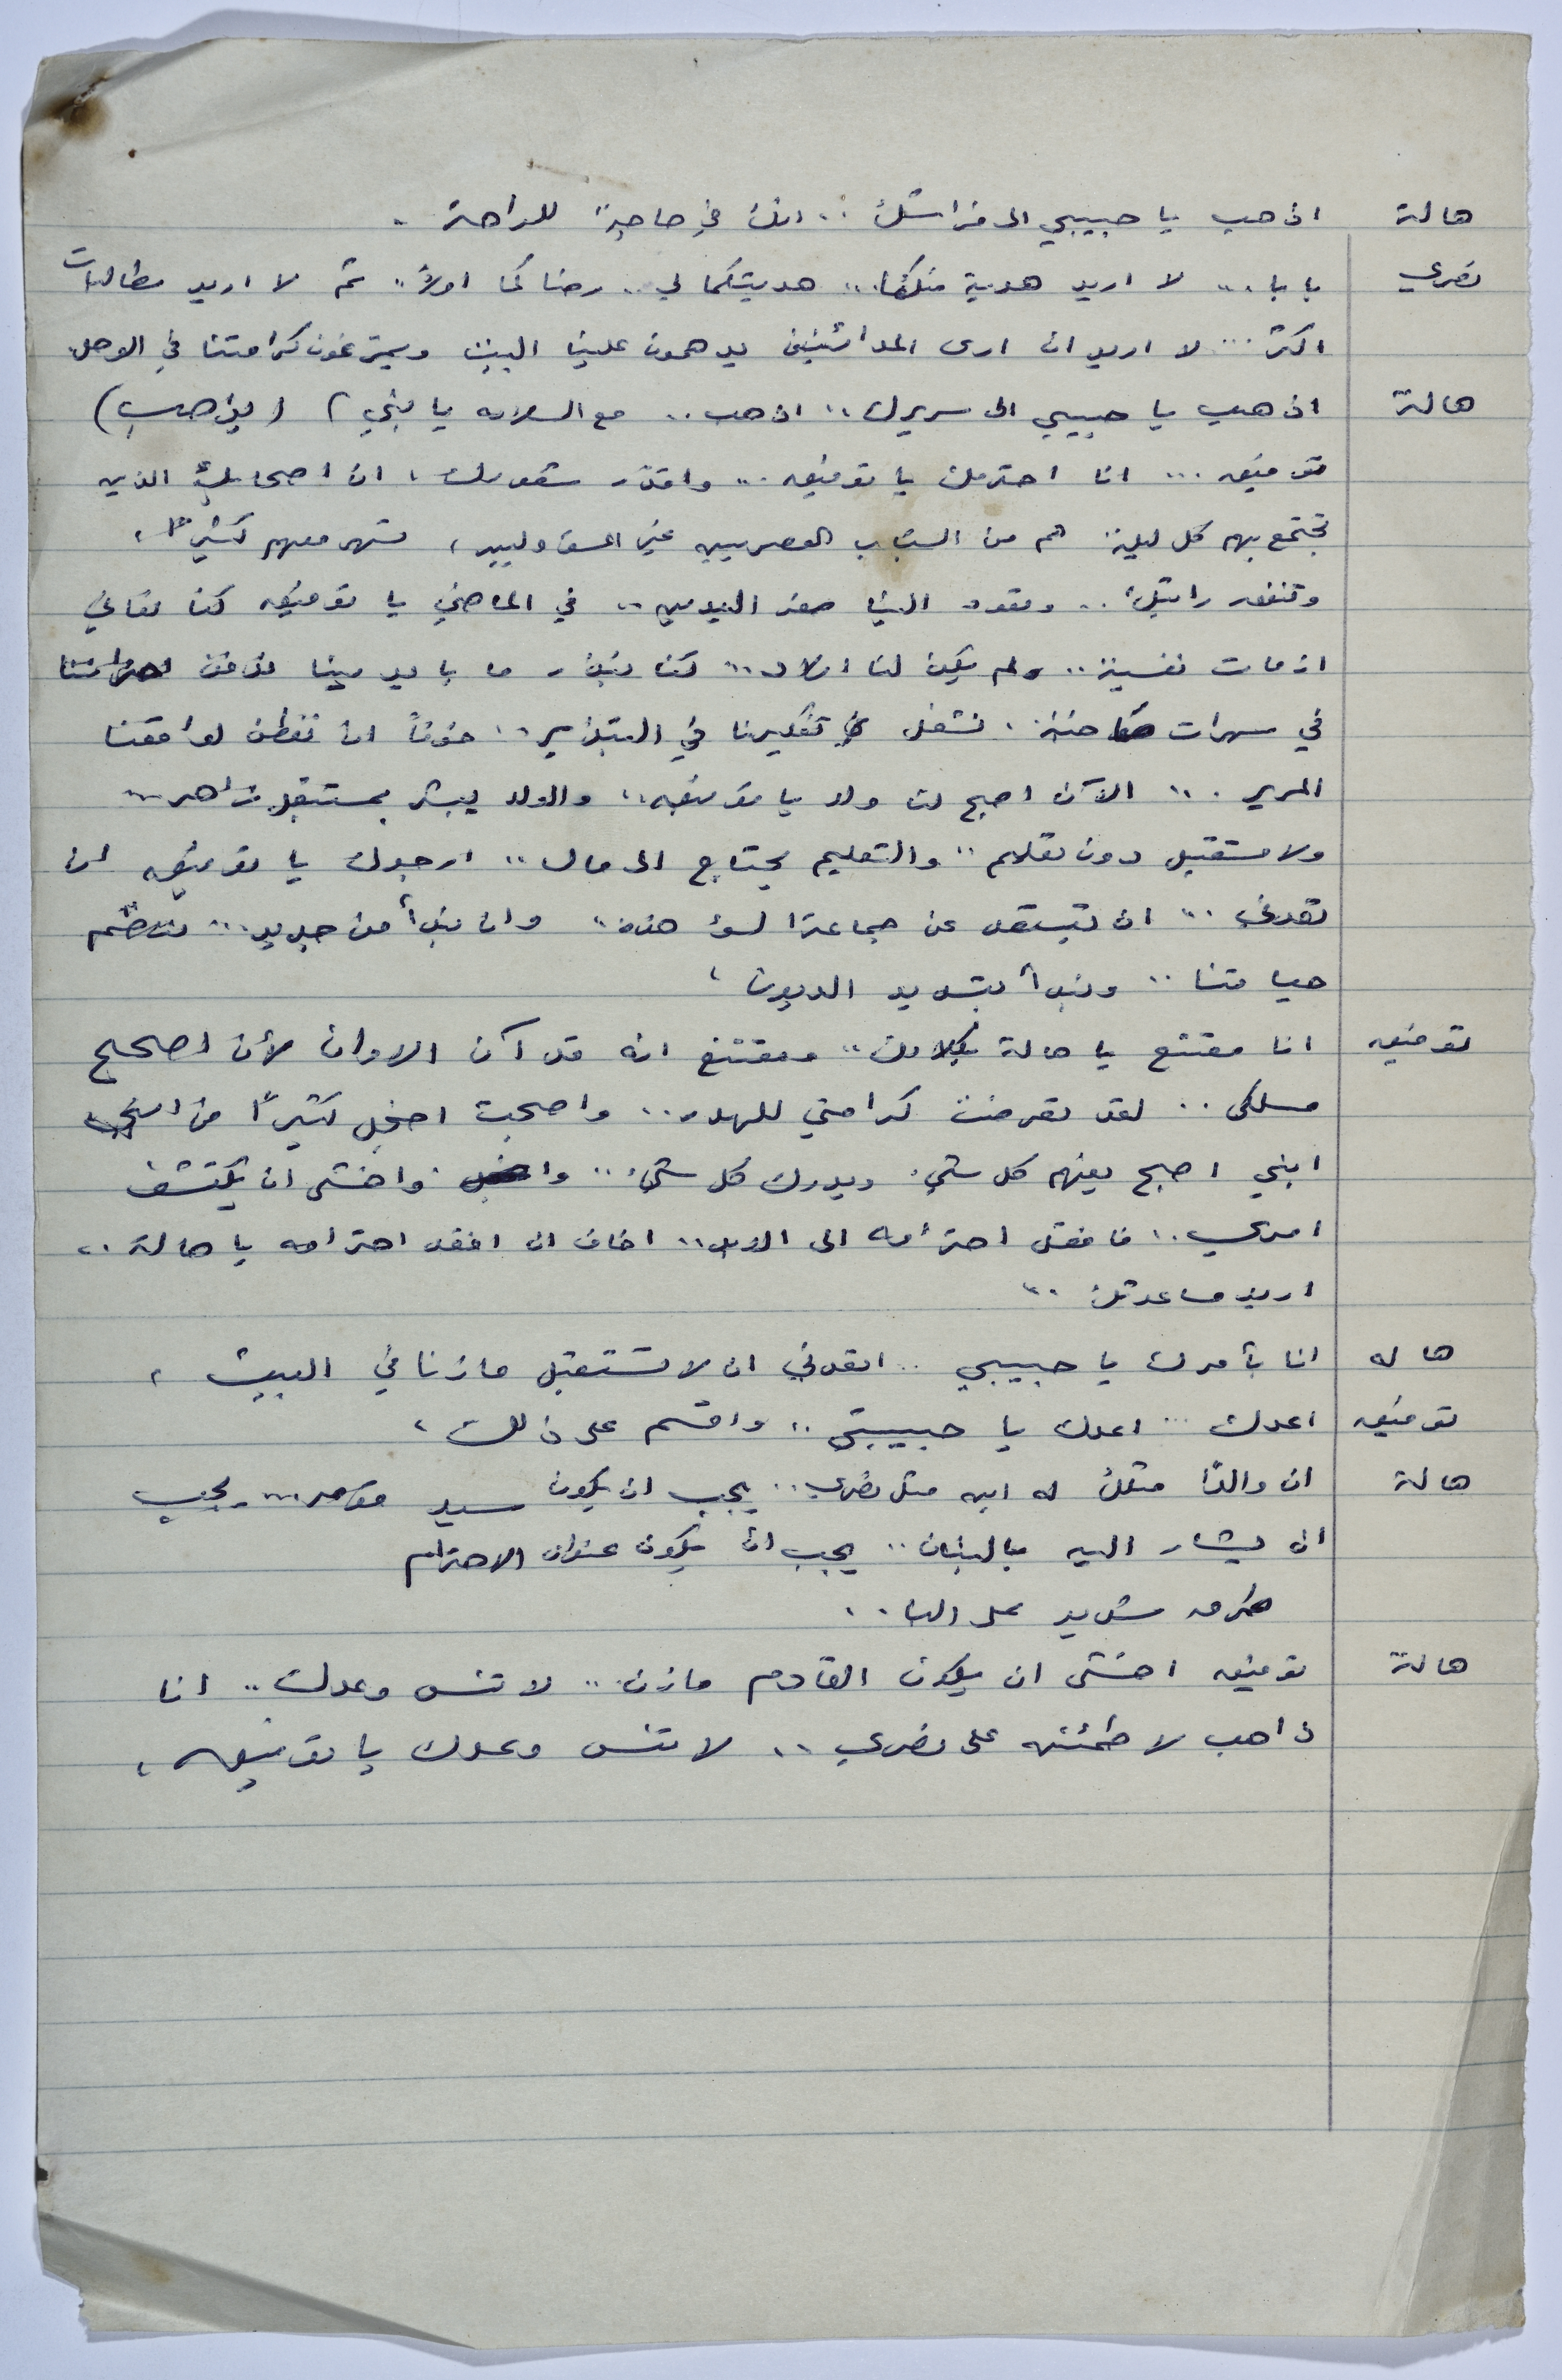 هالة اذهب يا حبيبي الى فراشك .. انك في حاجة للراحة .
نصري بابا ... لا اريد هدية منكما .. هديتكما لي .. رضاكما اولاً .. ثم لا اريد مطالبات
اكثر ... لا اريد ان ارى المدائنين يدهمون علينا البيت ويمرغون كرامتنا في الوحل
هالة اذهب يا حبيبي الى سريرك .. اذهب .. مع السلامه يا بني ) ( يذهب )
توفيق ... انا احترمك يا توفيق .. واقدّر شعورك ، ان اصحابك الذين
تجتمع بهم كل ليلة هم من الشباب العصريين غير المسؤوليين ، تسهر معهم كثيراً ،
وتنفق راتبك .. وتعود الينا صفر اليدين .. في الماضي يا توفيق كنا نعاني
ازمات نفسية .. ولم يكن لنا اولاد .. كنا نبذر ما بايدينا
في سهرات صاخبة ، نشغل تفكيرنا في التبذير .. خوفاً ان نفطن لواقعنا
المرير ... الآن اصبح لنا ولد يا توفيق .. والولد يبشر بمستقبل زاهر ...
ولا مستقبل دون تعليم .. والتعليم يحتاج الى مال .. ارجوك يا توفيق ان
تعدني .. ان تبتعد عن جماعة السوء هذه .. وان نبدأ من جديد ... ننظم
حياتنا .. ونبدأ بتسديد الديون ،
توفيق انا مقتنع يا هالة بكلامك .. ومقتنع انه قد آن الاوان لأن اصحح
مسلكي .. لقد تعرضت كرامتي للهدر .. واصبحت اخجل كثيراً من
ابني اصبح يفهم كل شيء ويدرك كل شيء .. واخشى ان يكتشف
امري .. فافقد احترامه الى الابد .. اخاف ان افقد احترامه يا هالة ..
اريد مساعدتك ..
هاله انا بأمرك يا حبيبي .. اتعدني ان لا تستقبل مازنا في البيت ،
توفيق اعدك ... اعدك يا حبيبتي .. واقسم على ذلك ،
هالة ان والدًا مثلك له ابن مثل نصري .. يجب ان يكون سيد .. يجب
ان يشار اليه بالبنان .. يجب ان يكون عنوان الاحترام
طرق شديد على الباب ..
هالة توفيق اخشى ان يكون القادم مازن .. لا تنس وعدك .. انا
ذاهب لاطمئنه على نصري .. لا تنس وعدك يا توفيق ،